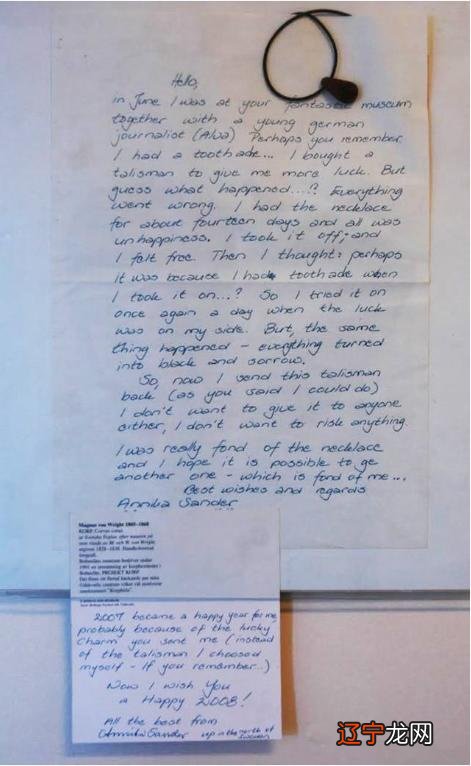 Hello,
in June I was at your fantastic museum
together with a young german
journalist (Alva) Perhaps you remember.
I had a toothade... I bought a
talisman to give me more luck. But
guess what happened....? Everything
went wrong. I had the necklace
for about fourteen days and all was
unhappiness. I took it off, and
I felt free. Then I thought: perhaps
it was because I had toothade when
I took it on...? So I tried it on
once again a day when the luck
was on my side. But, the same
thing happened - everything turned
into black and sorrow.
So, now I send this talisman
back (as you said I could do)
I don't want to give it to anyone
either, I don't want to risk anything.
I was really fond of the necklace
and I hope it is possible to ge
another one - which is fond of me...
Best wishes and regards
Annika Sander
Magnus von Wright 1805-1868
KORP/Corvus corax
2007 became a happy year for me
probably because of the lucky
charm you sent me (instead
of the talisman I choosed
myself - If you remember...)
Now I wish you
a Happy 2008!
All the best from
Annika Sander up in the north of
Sweden
辽宁龙网